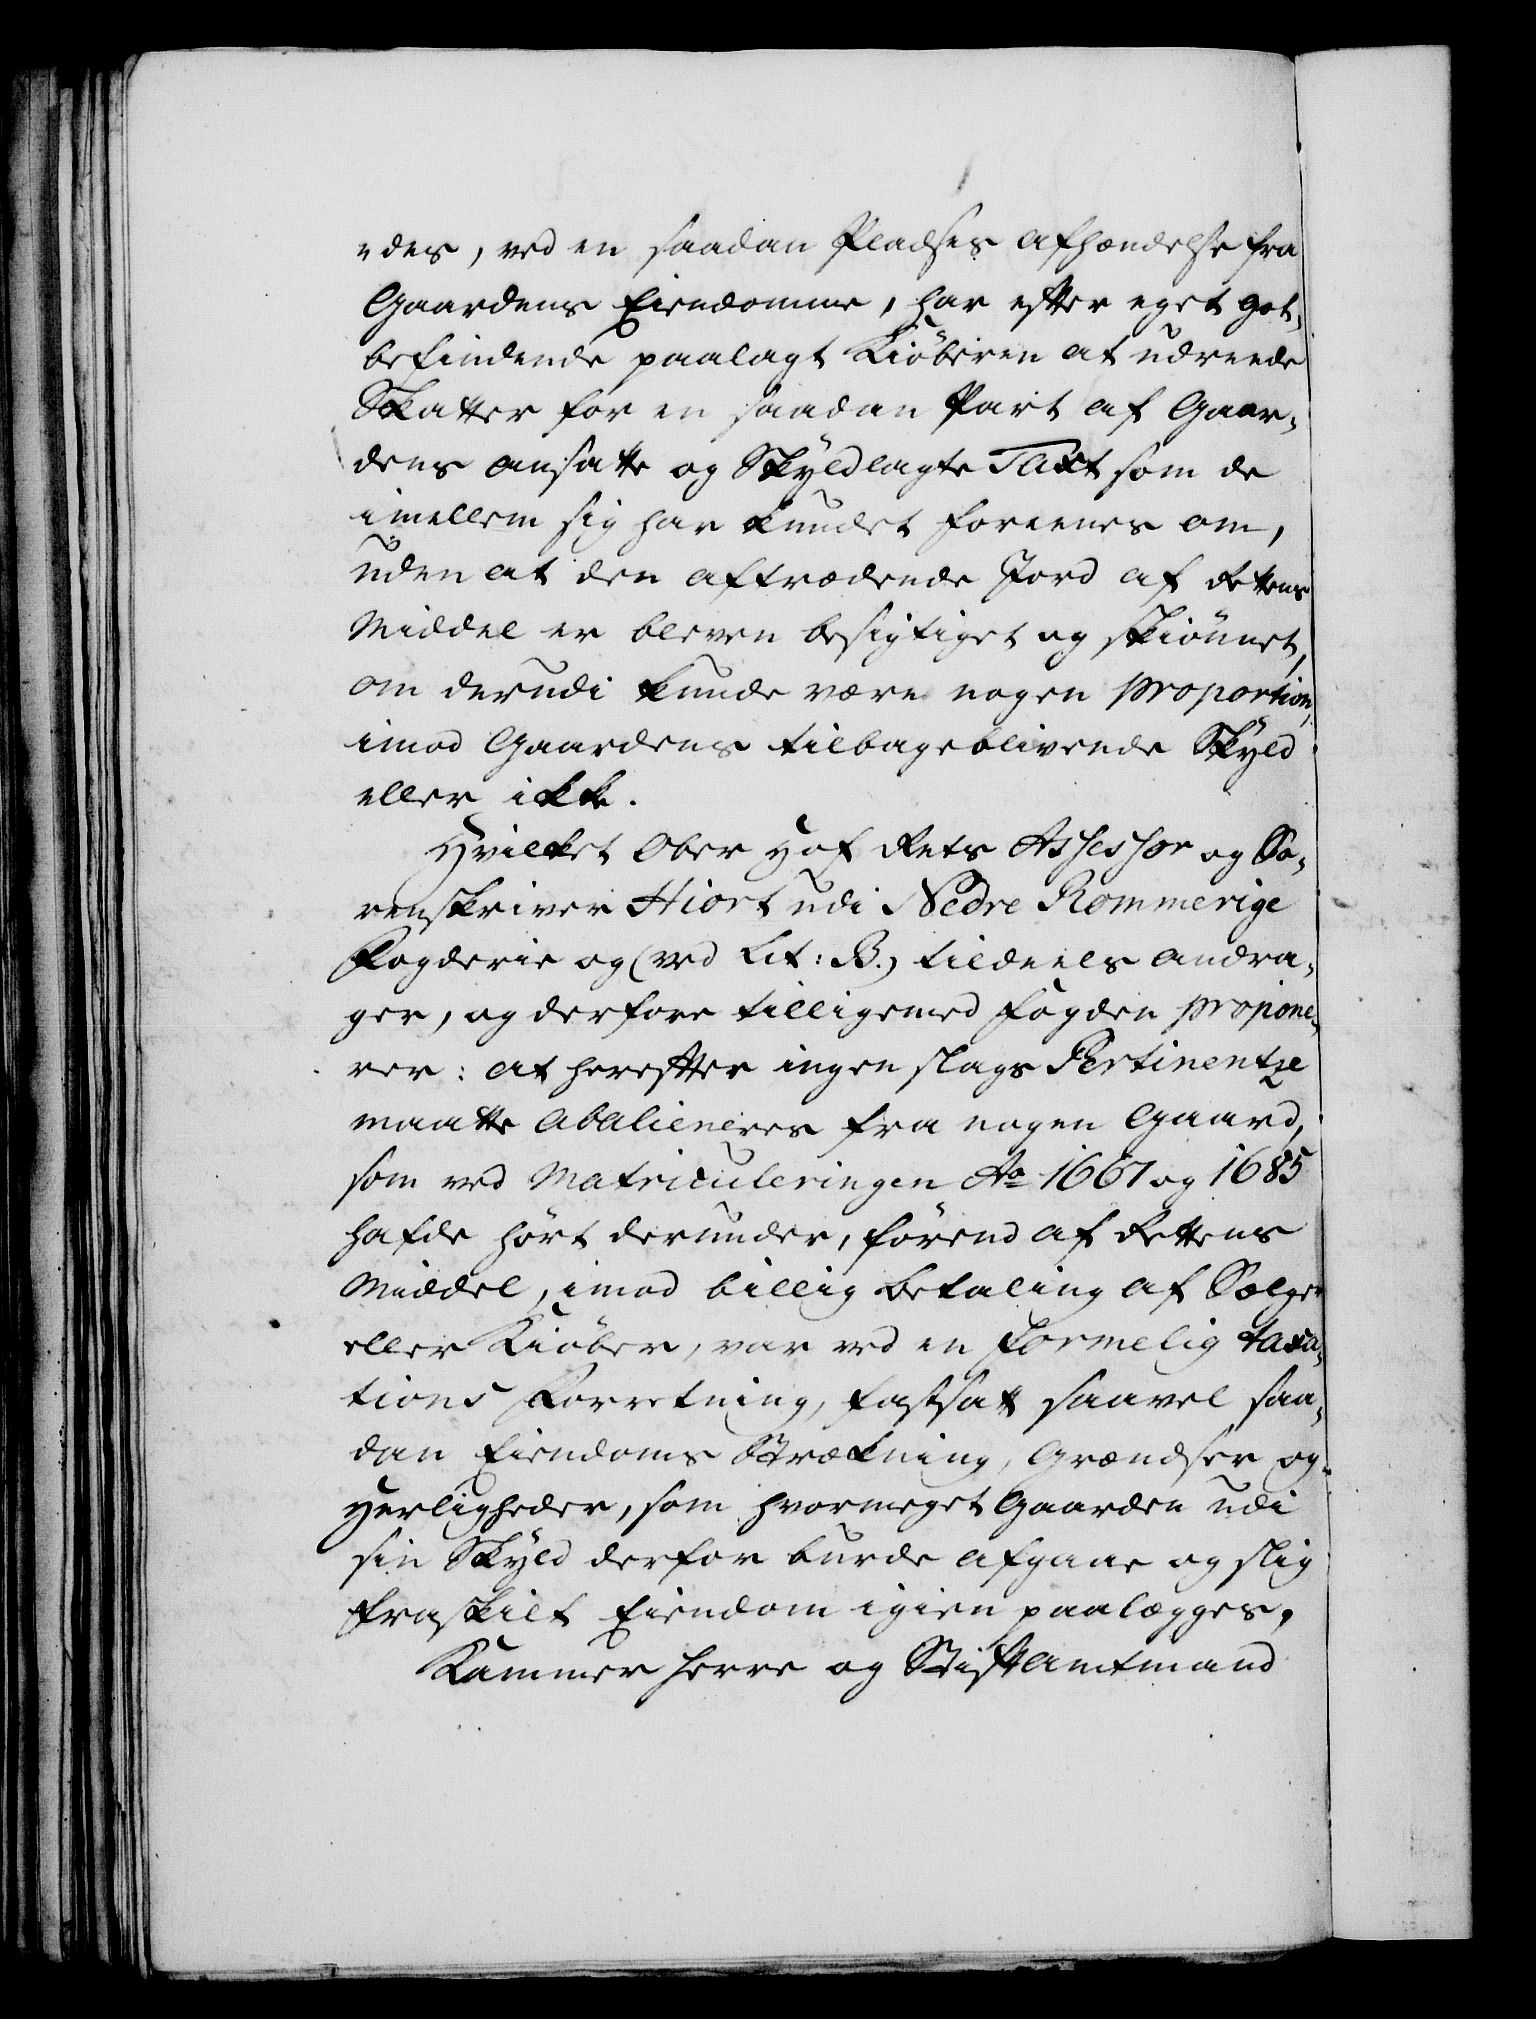 -des, ved en saadan Pladses afhændelse fra
Gaardens Eiendomme, har efter eget got-
befindende paalagt Kiøberen at udreede
Skatter for en saadan Part af Gaar-
dens ansatte og Skyldlagte Taxt som de
imellem sig har kundet foreenes om,
uden at den aftrædende Jord af Rettens
Middel er bleven besigtiget og skiønnet,
om derudi kunde være nogen proportion,
imod Gaardens tilbageblivende Skyld
eller ikke.
Hvilket Ober Hof Rets Assessor og So-
renskriver Hiort udi Nedre Rommerige
Fogderie og (ved Lit: B.) tildeels andra-
ger, og derfore tilligemed Fogden propone-
rer: at herefter ingen slags Pertinentze
maatte abalieneres fra nogen Gaard,
som ved Matriculeringen Ao 1667 og 1685
hafde hørt derunder, førend af Rettens
Middel, imod billig betaling af Sælger
eller Kiøber, var ved en formelig taxa-
tions Forretning, fastsatt saavel saa-
dan Eiendoms Strækning, Grændser og
Herligheder, som hvormeget Gaarden udi
sin Skyld derfor burde afgaae og slig
fraskilt Eiendom igien paalægges,
Kammer Herre og Stiftamtmand